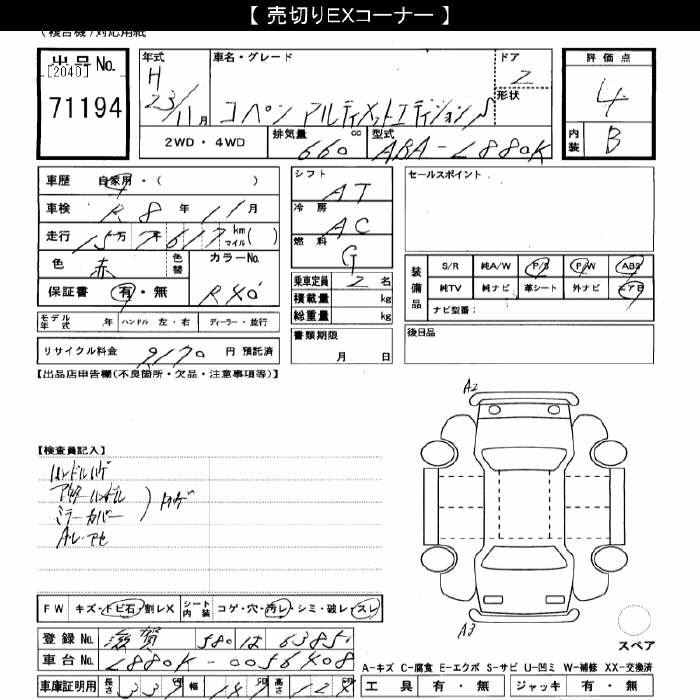 【 売切りEXコーナー 】
(複合機)対応用紙
出品No.
[2040]
71194
年式 H 23/11月
車名・グレード コペン アルティメットエディションS
ドア 2
形状
評価点 4
内装 B
2WD・4WD
排気量 660 cc
型式 ABA-L880K
車歴 自家用・( )
車検 R8年11月
走行 15万7千617km マイル( )
色 赤 色替 カラーNo. R40
保証書 有・無
モデル年式 年 ハンドル 左・右 ディーラー・並行
リサイクル料金 9170 円 預託済
シフト AT
冷房 AC
燃料 G
乗車定員 2名
積載量 kg
総重量 kg
書類期限 月 日
セールスポイント
装備品 S/R 純A/W P/S P/W ABS
純TV 純ナビ 革シート 外ナビ エアB
ナビ型番:
後日品
【出品店申告欄(不良箇所・欠品・注意事項等)】
【検査員記入】
ハンドルハゲ
アウターハンドル
ミラーカバー
A2
A3
スペア
FW キズ・トビ石・割レX シート内装 コゲ・穴・汚レ・シミ・破レ・スレ
登録No. 滋賀 580 は 6385
車台No. L880K-0056408
車庫証明用 長さ 339 cm 幅 147 cm 高さ 12 cm
A-キズ C-腐食 E-エクボ S-サビ U-凹ミ W-補修 XX-交換済
工具 有・無 ジャッキ 有・無